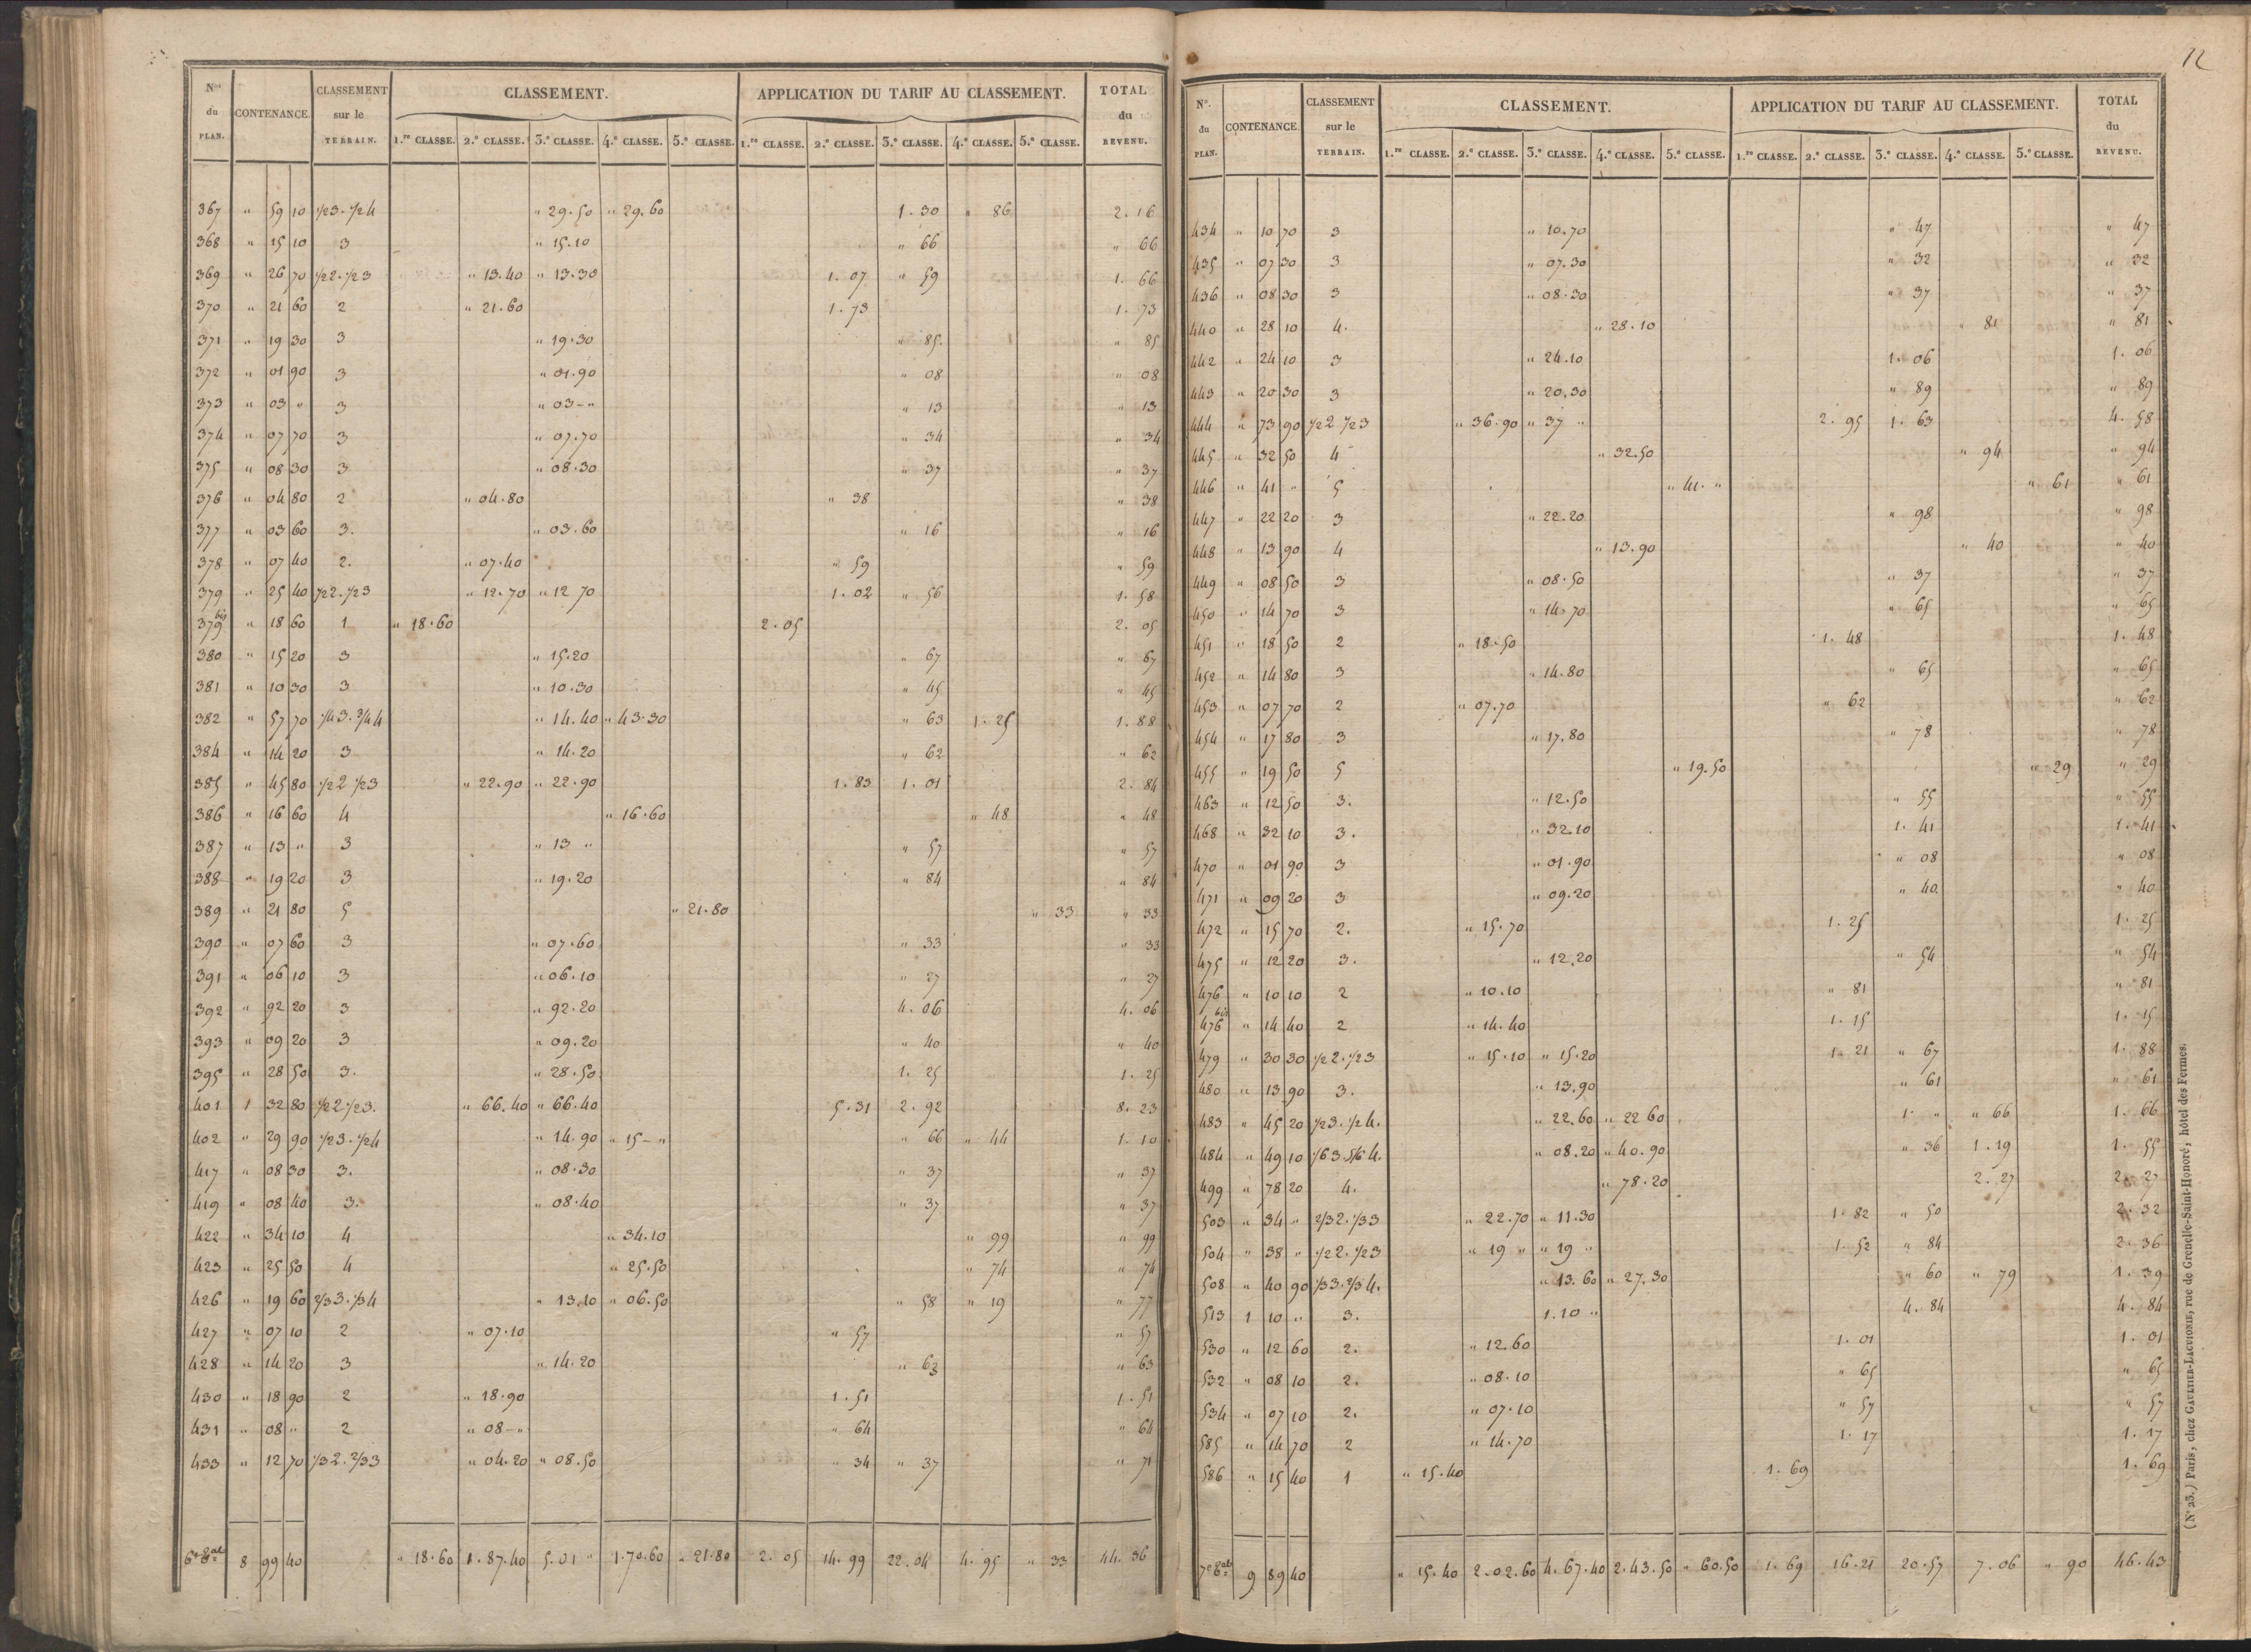 N.os du PLAN. CONTENANCE. CLASSEMENT sur le TERRAIN. CLASSEMENT. APPLICATION DU TARIF AU CLASSEMENT. TOTAL du REVENU.
1.re CLASSE. 2.e CLASSE. 3.e CLASSE. 4.e CLASSE. 5.e CLASSE. 1.re CLASSE. 2.e CLASSE. 3.e CLASSE. 4.e CLASSE. 5.e CLASSE.
367 " 59 10 1/2 3. 1/2 4 " 29.50 " 29.60 1.30 " 86 2.16
368 " 15 10 3 " 15.10 " 66 " 66
369 " 26 70 1/2 2. 1/2 3 " 13.40 " 13.30 1.07 " 59 1.66
370 " 21 60 2 " 21.60 1.73 1.73
371 " 19 30 3 " 19.30 " 85. " 85
372 " 01 90 3 " 01.90 " 08 " 08
373 " 03 " 3 " 03-" " 13 " 13
374 " 07 70 3 " 07.70 " 34 " 34
375 " 08 30 3 " 08.30 " 37 " 37
376 " 04 80 2 " 04.80 " 38 " 38
377 " 03 60 3. " 03.60 " 16 " 16
378 " 07 40 2. " 07.40 " 59 " 59
379 " 25 40 1/2 2. 1/2 3 " 12.70 " 12 70 1.02 " 56 1.58
379 bis " 18 60 1 " 18.60 2.05 2.05
380 " 15 20 3 " 15.20 " 67 " 67
381 " 10 30 3 " 10.30 " 45 " 45
382 " 57 70 1/4 3. 3/4 4 " 14.40 " 43.30 " 63 1.25 1.88
384 " 14 20 3 " 14.20 " 62 " 62
385 " 45 80 1/2 2 1/2 3 " 22.90 " 22.90 1.83 1.01 2.84
386 " 16 60 4 " 16.60 " 48 " 48
387 " 13 " 3 " 13 " " 57 " 57
388 " 19 20 3 " 19.20 " 84 " 84
389 " 21 80 5 " 21.80 " 33 " 33
390 " 07 60 3 " 07.60 " 33 " 33
391 " 06 10 3 " 06.10 " 27 " 27
392 " 92 20 3 " 92.20 4.06 4.06
393 " 09 20 3 " 09.20 " 40 " 40
395 " 28 50 3. " 28.50 1.25 1.25
401 1 32 80 1/2 2. 1/2 3. " 66.40 " 66.40 5.31 2.92 8.23
402 " 29 90 1/2 3. 1/2 4 " 14.90 " 15-" " 66 " 44 1.10
417 " 08 30 3. " 08.30 " 37 " 37
419 " 08 40 3. " 08.40 " 37 " 37
422 " 34 10 4 " 34.10 " 99 " 99
423 " 25 50 4 " 25.50 " 74 " 74
426 " 19 60 2/3 3. 1/3 4 " 13.10 " 06.50 " 58 " 19 " 77
427 " 07 10 2 " 07.10 " 57 " 57
428 " 14 20 3 " 14.20 " 63 " 63
430 " 18 90 2 " 18.90 1.51 1.51
431 " 08 " 2 " 08-" " 64 " 64
433 " 12 70 1/3 2. 2/3 3 " 04.20 " 08.50 " 34 " 37 " 71
8 99 40 " 18.60 1.87.40 5.01 " 1.70.60 " 21.80 2.05 14.99 22.04 4.95 " 33 44.36
12
N.os du PLAN. CONTENANCE. CLASSEMENT sur le TERRAIN. CLASSEMENT. APPLICATION DU TARIF AU CLASSEMENT. TOTAL du REVENU.
1.re CLASSE. 2.e CLASSE. 3.e CLASSE. 4.e CLASSE. 5.e CLASSE. 1.re CLASSE. 2.e CLASSE. 3.e CLASSE. 4.e CLASSE. 5.e CLASSE.
434 " 10 70 3 " 10.70 " 47 " 47
435 " 07 30 3 " 07.30 " 32 " 32
436 " 08 30 3 " 08.30 " 37 " 37
440 " 28 10 4. " 28.10 " 81 " 81
442 " 24 10 3 " 24.10 1.06 1.06
443 " 20 30 3 " 20.30 " 89 " 89
444 " 73 90 1/2 2 1/2 3 " 36.90 " 37 " 2.95 1.63 4.58
445 " 32 50 4 " 32.50 " 94 " 94
446 " 41 " 5 " 41. " " 61 " 61
447 " 22 20 3 " 22.20 " 98 " 98
448 " 13 90 4 " 13.90 " 40 " 40
449 " 08 50 3 " 08.50 " 37 " 37
450 " 14 70 3 " 14.70 " 65 " 65
451 " 18 50 2 " 18.50 1.48 1.48
452 " 14 80 3 " 14.80 " 65 " 65
453 " 07 70 2 " 07.70 " 62 " 62
454 " 17 80 3 " 17.80 " 78 " 78
455 " 19 50 5 " 19.50 " 29 " 29
463 " 12 50 3. " 12.50 " 55 " 55
468 " 32 10 3. " 32.10 1.41 1.41
470 " 01 90 3 " 01.90 " 08 " 08
471 " 09 20 3 " 09.20 " 40 " 40
472 " 15 70 2. " 15.70 1.25 1.25
475 " 12 20 3. " 12.20 " 54 " 54
476 " 10 10 2 " 10.10 " 81 " 81
476 bis " 14 40 2 " 14.40 1.15 1.15
479 " 30 30 1/2 2. 1/2 3 " 15.10 " 15.20 1.21 " 67 1.88
480 " 13 90 3. " 13.90 " 61 " 61
483 " 45 20 1/2 3. 1/2 4. " 22.60 " 22 60 1. " " 66 1.66
484 " 49 10 1/6 3. 5/6 4. " 08.20 " 40.90 " 36 1.19 1.55
499 " 78 20 4. " 78.20 2.27 2.27
503 " 34 " 2/3 2. 1/3 3 " 22.70 " 11.30 1.82 " 50 2.32
504 " 38 " 1/2 2. 1/2 3 " 19 " " 19 " 1.52 " 84 2.36
508 " 40 90 1/3 3. 2/3 4. " 13.60 " 27.30 " 60 " 79 1.39
513 1 10 " 3. 1.10 " 4.84 4.84
530 " 12 60 2. " 12.60 1.01 1.01
532 " 08 10 2. " 08.10 " 65 " 65
534 " 07 10 2. " 07.10 " 57 " 57
585 " 14 70 2 " 14.70 1.17 1.17
586 " 15 40 1 " 15.40 1.69 1.69
9 89 40 " 15.40 2.02.60 4.67.40 2.43.50 " 60.50 1.69 16.21 20.57 7.06 " 90 46.43
(N° 23.) Paris, chez GAULTIER-LAGUIONIE, rue de Grenelle-Saint-Honoré, hôtel des Fermes.